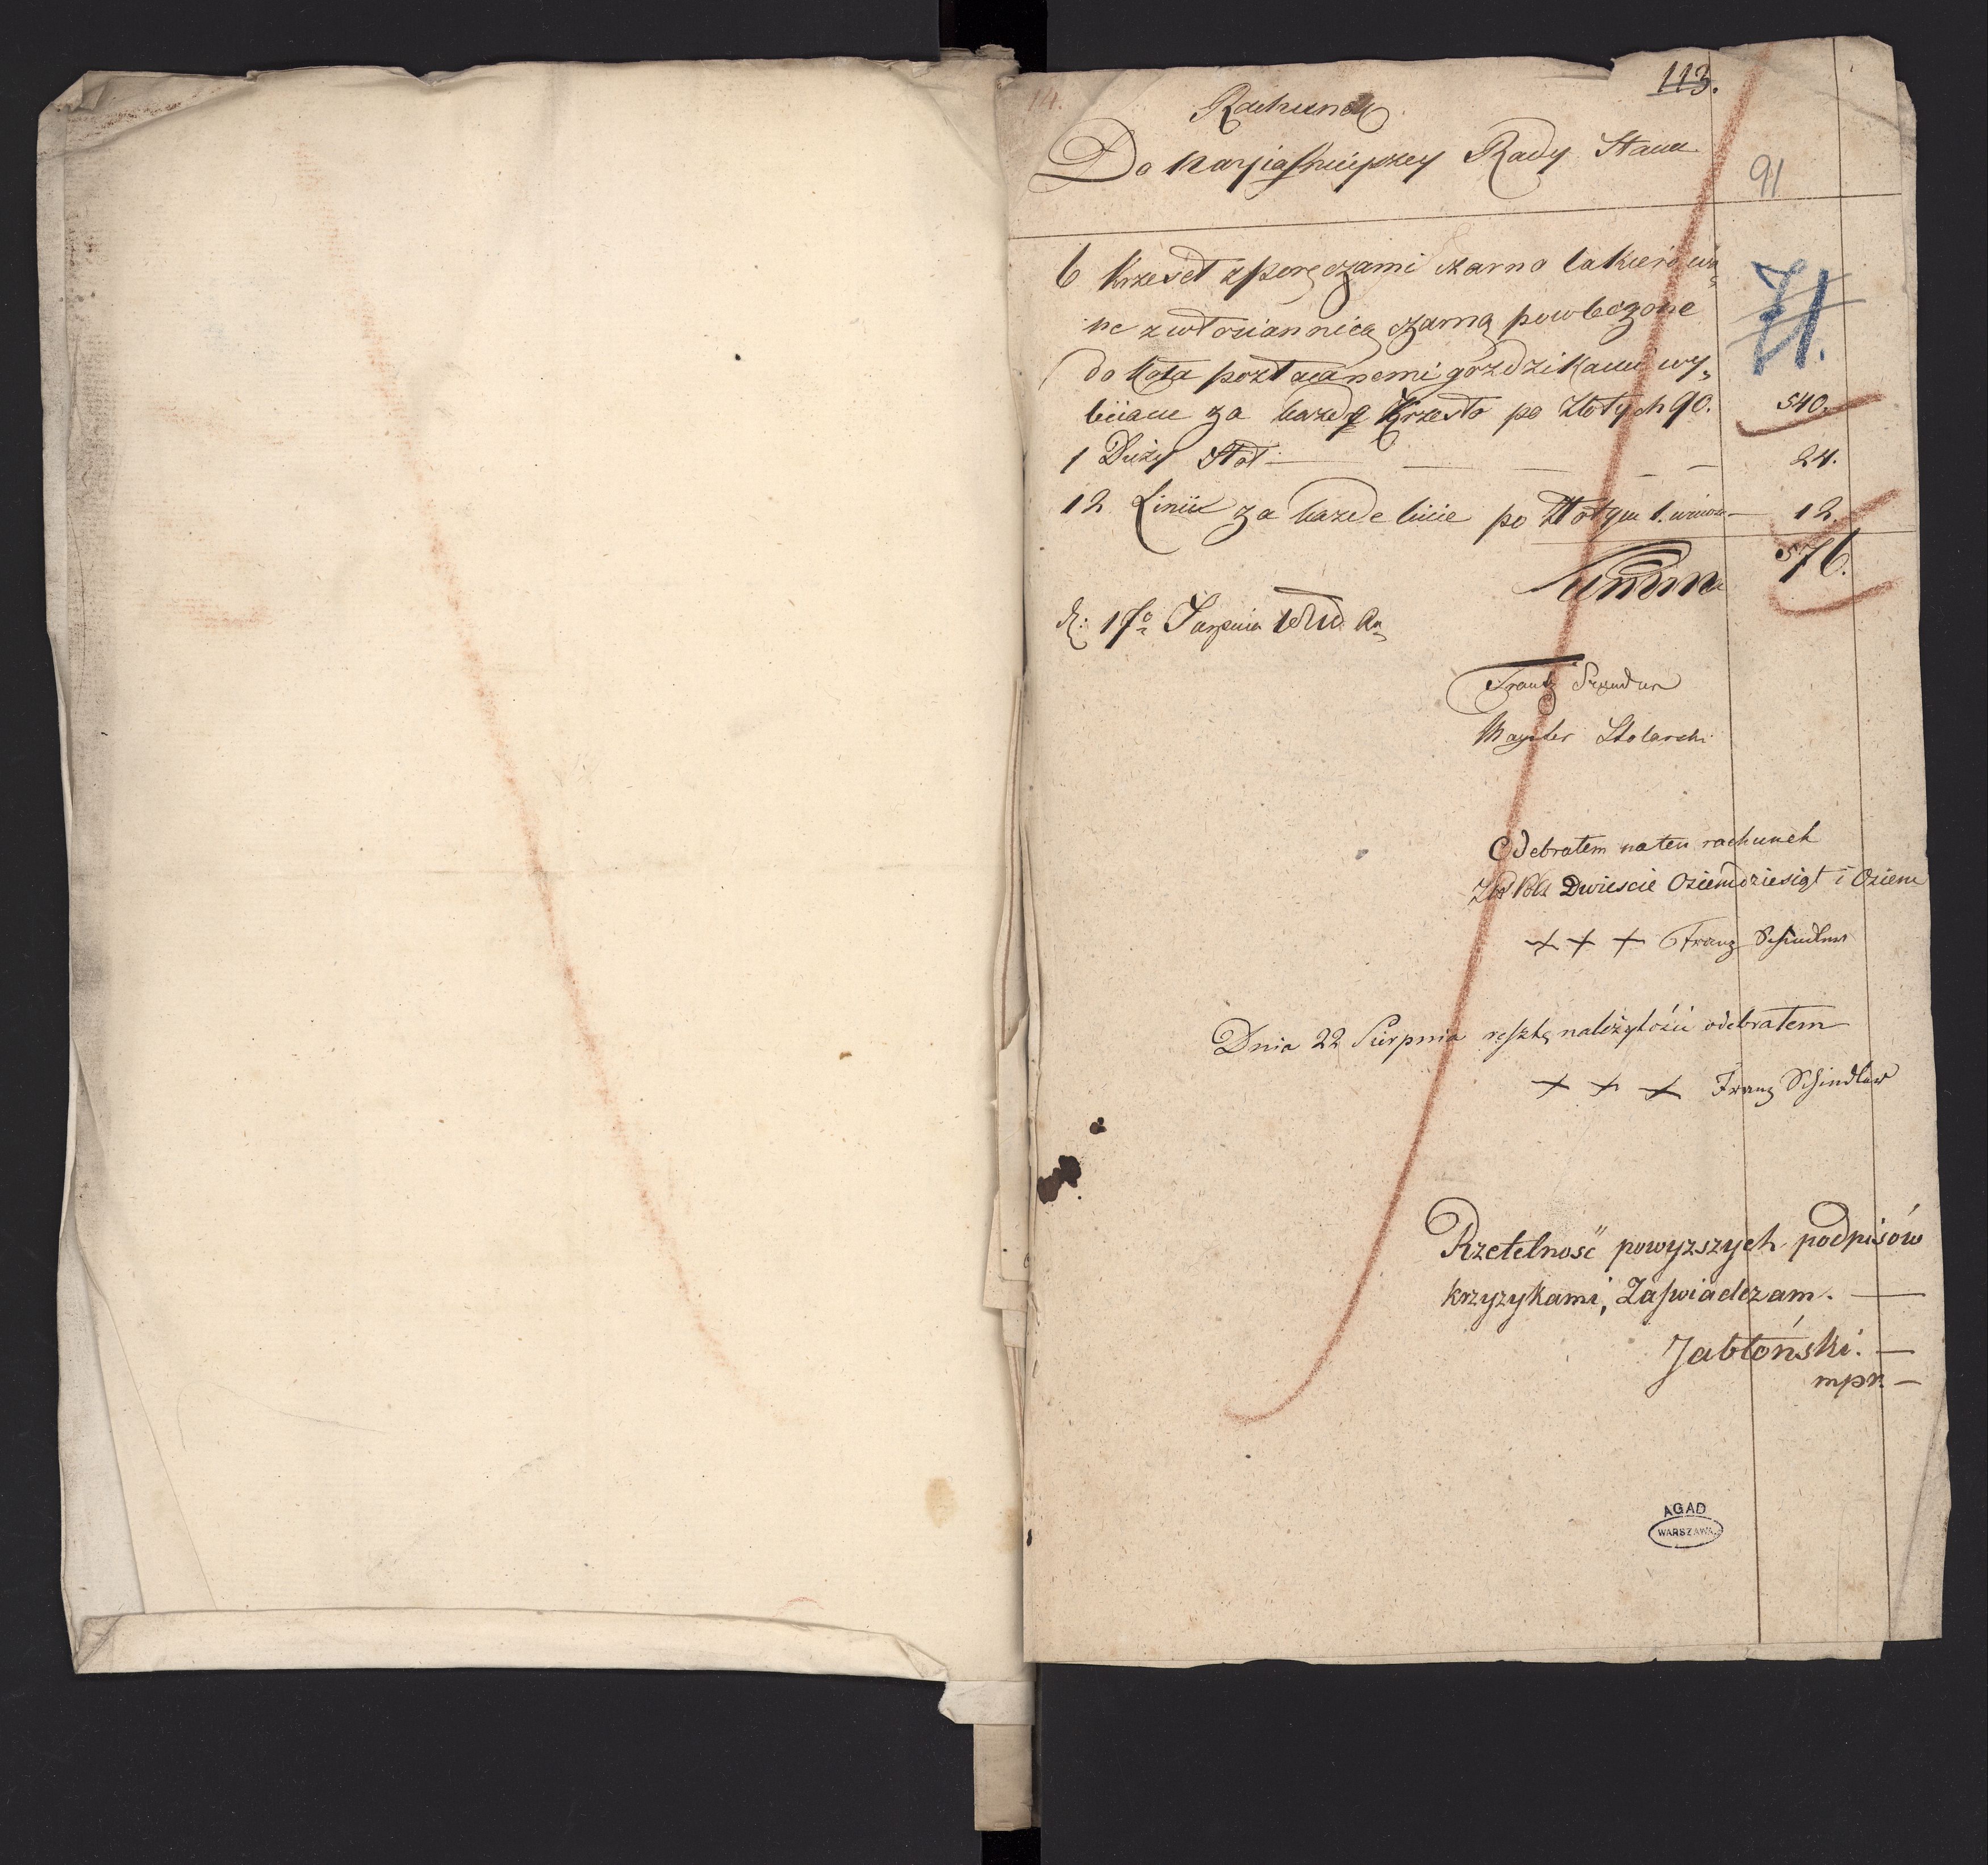 14.
113.
Rachunek
Do Nayjaśnieyszey Rady Stanu
91
6 Krzeseł z poręczami czarno lakierowa„
ne z włosiannicą czarną powleczone
71.
do koła pozłacanemi gozdzikami wy„
biiane za każdę Krzesło po Złotych 90. 540.
1 Duży Stoł — — — — 24.
12 Linii za każde linie po Złotym 1. 12.
Summa 576.
d: 17º Sierpnia
Frantz
Mayster Stolarski
Odebrałem na ten rachunek
Dwiescie Osiemdziesiąt i Osiem
+ + + Franz Schindler
Dnia 22 Sierpnia resztę należytości odebrałem
+ + + Franz Schindler
Rzetelność powyzszych podpisów
krzyzykami, Zaświadczam. —
Jabłoński. —
mpr. —
AGAD
WARSZAWA